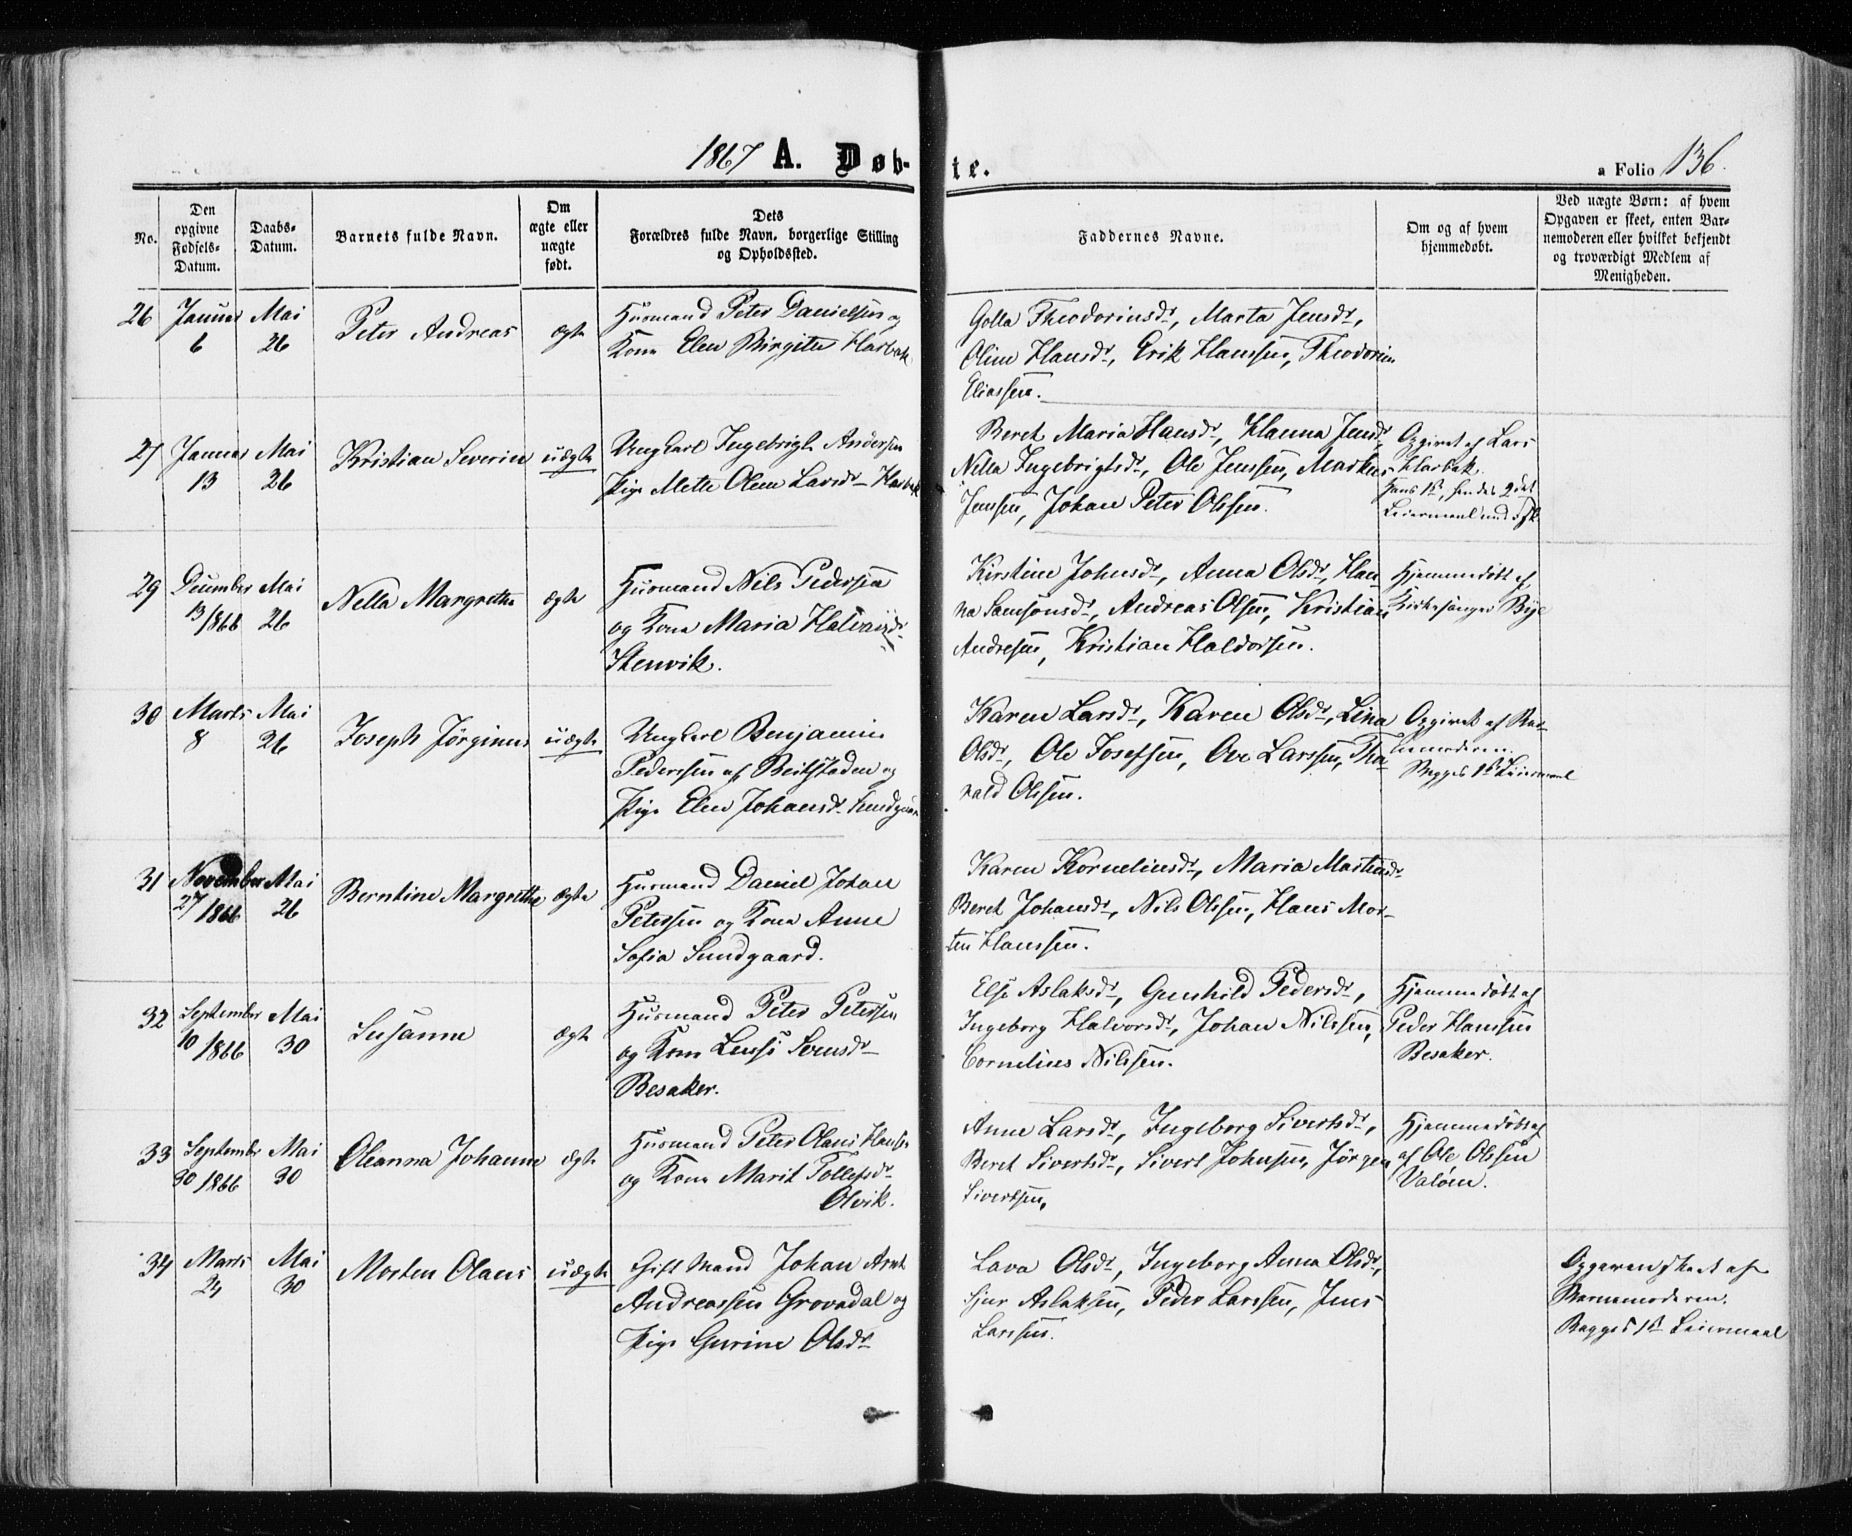 1867 A. Døb-te.
a Folio 136.
No.
Den opgivne Fødsels-Datum.
Daabs-Datum.
Barnets fulde Navn.
Om ægte eller uægte født.
Dets Forældres fulde Navn, borgerlige Stilling og Opholdssted.
Faddernes Navne.
Om og af hvem hjemmedøbt.
Ved uægte Børn: af hvem Opgaven er skeet, enten Barnemoderen eller hvilket bekjendt og troværdigt Medlem af Menigheden.
26 Januar 6 Mai 26 Peter Andreas ægte
Husmand Peter Danielsen og
Kone Elen Birgite Harbak
Golla Theodorinsdr, Marta Jensdr,
Oline Hansdr, Erik Hanssen, Theodorin
Eliassen.
27 Januar 13 Mai 26 Kristian Severin uægte
Ungkarl Ingebrigt Andersen
Pige Mette Oline Larsdr Harbak
Beret Maria Hansdr, Hanna Jensdr,
Nella Ingebrigtsdr, Ole Jenssen, Markus
Jenssen, Johan Peter Olssen.
Opgivet af Lars
Harbak.
Hans 1ste, hendes 2det
Leiermaal
29 December 13/1866 Mai 26 Nella Margrethe ægte
Husmand Nils Pedersen
og Kone Maria
Stenvik.
Kirstine Johnsdr, Anna Olsdr, Han-
na Samsonsdr, Andreas Olsen, Kristian
Andresen, Kristian Haldorsen.
Hjemmedøbt af
Kirkesanger Bye
30 Marts 8 Mai 26 Joseph Jørginus uægte
Ungkarl Benjamin
Pederssen af Beitstaden og
Pige Elen Johansdr Sundgaard
Karen Larsdr, Karen Olsdr, Lina
Olsdr, Ole Josefsen, Ove Larssen, Tho-
rald Olssen.
Opgivet af Bar-
nemoderen.
Begges 1ste Leiermaal
31 November 27/1866 Mai 26 Berntine Margrethe ægte
Husmand Daniel Johan
Peterssen og Kone Anne
Sofia Sundgaard.
Karen Korneliusdr, Maria Martinsdr
Beret Johansdr, Nils Olssen, Hans Mor-
ten Hanssen.
32 September 10/1866 Mai 30 Susanne ægte
Husmand Peter Petersen
og Kone Lensi Svensdr
Besaker.
Else Aslaksdr, Gunhild Pedersdr,
Ingeborg Halvorsdr, Johan Nilssen,
Cornelius Nilssen.
Hjemmedøbt af
Peder Hanssen
Besaker.
33 September 30/1866 Mai 30 Oleanna Johanne ægte
Husmand Peter Olaus Hanssen
og Kone Marit Tollefsdr
Olvik.
Anne Larsdr, Ingeborg Sivertsdr,
Beret Sivertsdr, Sivert Johnsen, Jørgen
Sivertsen.
Hjemmedøbt af
af Ole Olssen
Valøen.
34 Marts 24 Mai 30 Morten Olaus uægte
Gift Mand Johan Arnt
Andreassen Grovadal og
Pige Gurine Olsdr
Lava Olsdr, Ingeborg Anna Olsdr,
Sjur Aslaksen, Peder Larssen, Jens
Larssen.
Opgaven skeet af
Barnemoderen.
Begges 1ste Leiermaal